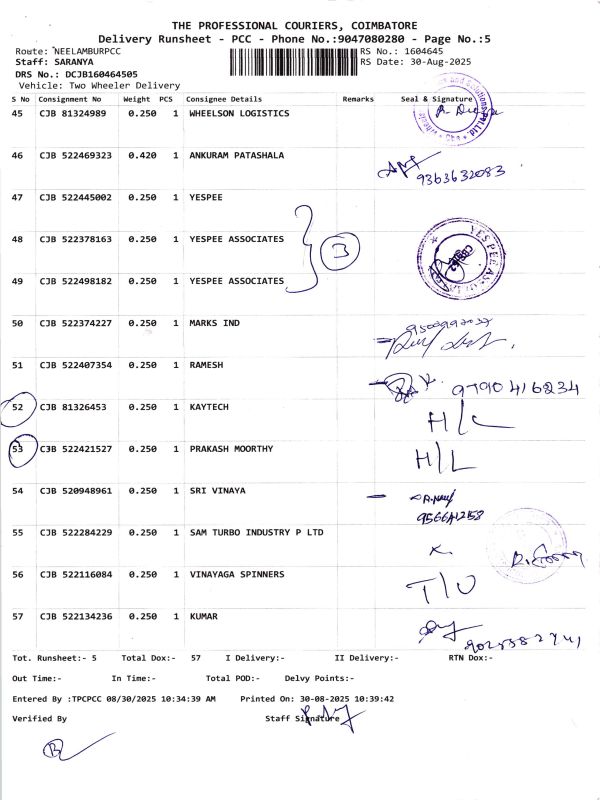 THE PROFESSIONAL COURIERS, COIMBATORE
Delivery Runsheet - PCC - Phone No.:9047080280 - Page No.:5
Route: NEELAMBURPCC
RS No.: 1604645
Staff: SARANYA
RS Date: 30-Aug-2025
DRS No.: DCJB160464505
Vehicle: Two Wheeler Delivery
S No Consignment No Weight PCS Consignee Details Remarks Seal & Signature
45 CJB 81324989 0.250 1 WHEELSON LOGISTICS
46 CJB 522469323 0.420 1 ANKURAM PATASHALA
9363632083
47 CJB 522445002 0.250 1 YESPEE
48 CJB 522378163 0.250 1 YESPEE ASSOCIATES
3
YES PEE ASSOCIATES
49 CJB 522498182 0.250 1 YESPEE ASSOCIATES
50 CJB 522374227 0.250 1 MARKS IND
51 CJB 522407354 0.250 1 RAMESH
9790416234
52 CJB 81326453 0.250 1 KAYTECH
H/L
53 CJB 522421527 0.250 1 PRAKASH MOORTHY
H/L
54 CJB 520948961 0.250 1 SRI VINAYA
55 CJB 522284229 0.250 1 SAM TURBO INDUSTRY P LTD
56 CJB 522116084 0.250 1 VINAYAGA SPINNERS
57 CJB 522134236 0.250 1 KUMAR
Tot. Runsheet:- 5 Total Dox:- 57 I Delivery:- II Delivery:- RTN Dox:-
Out Time:- In Time:- Total POD:- Delvy Points:-
Entered By :TPCPCC 08/30/2025 10:34:39 AM Printed On: 30-08-2025 10:39:42
Verified By Staff Signature